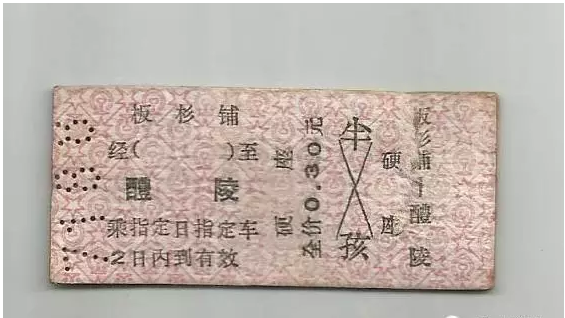 板杉铺
经(　　)至
醴陵
乘指定日指定车
2日内到有效
硬座
全价0.30元
半
孩
硬座
板杉铺
醴陵